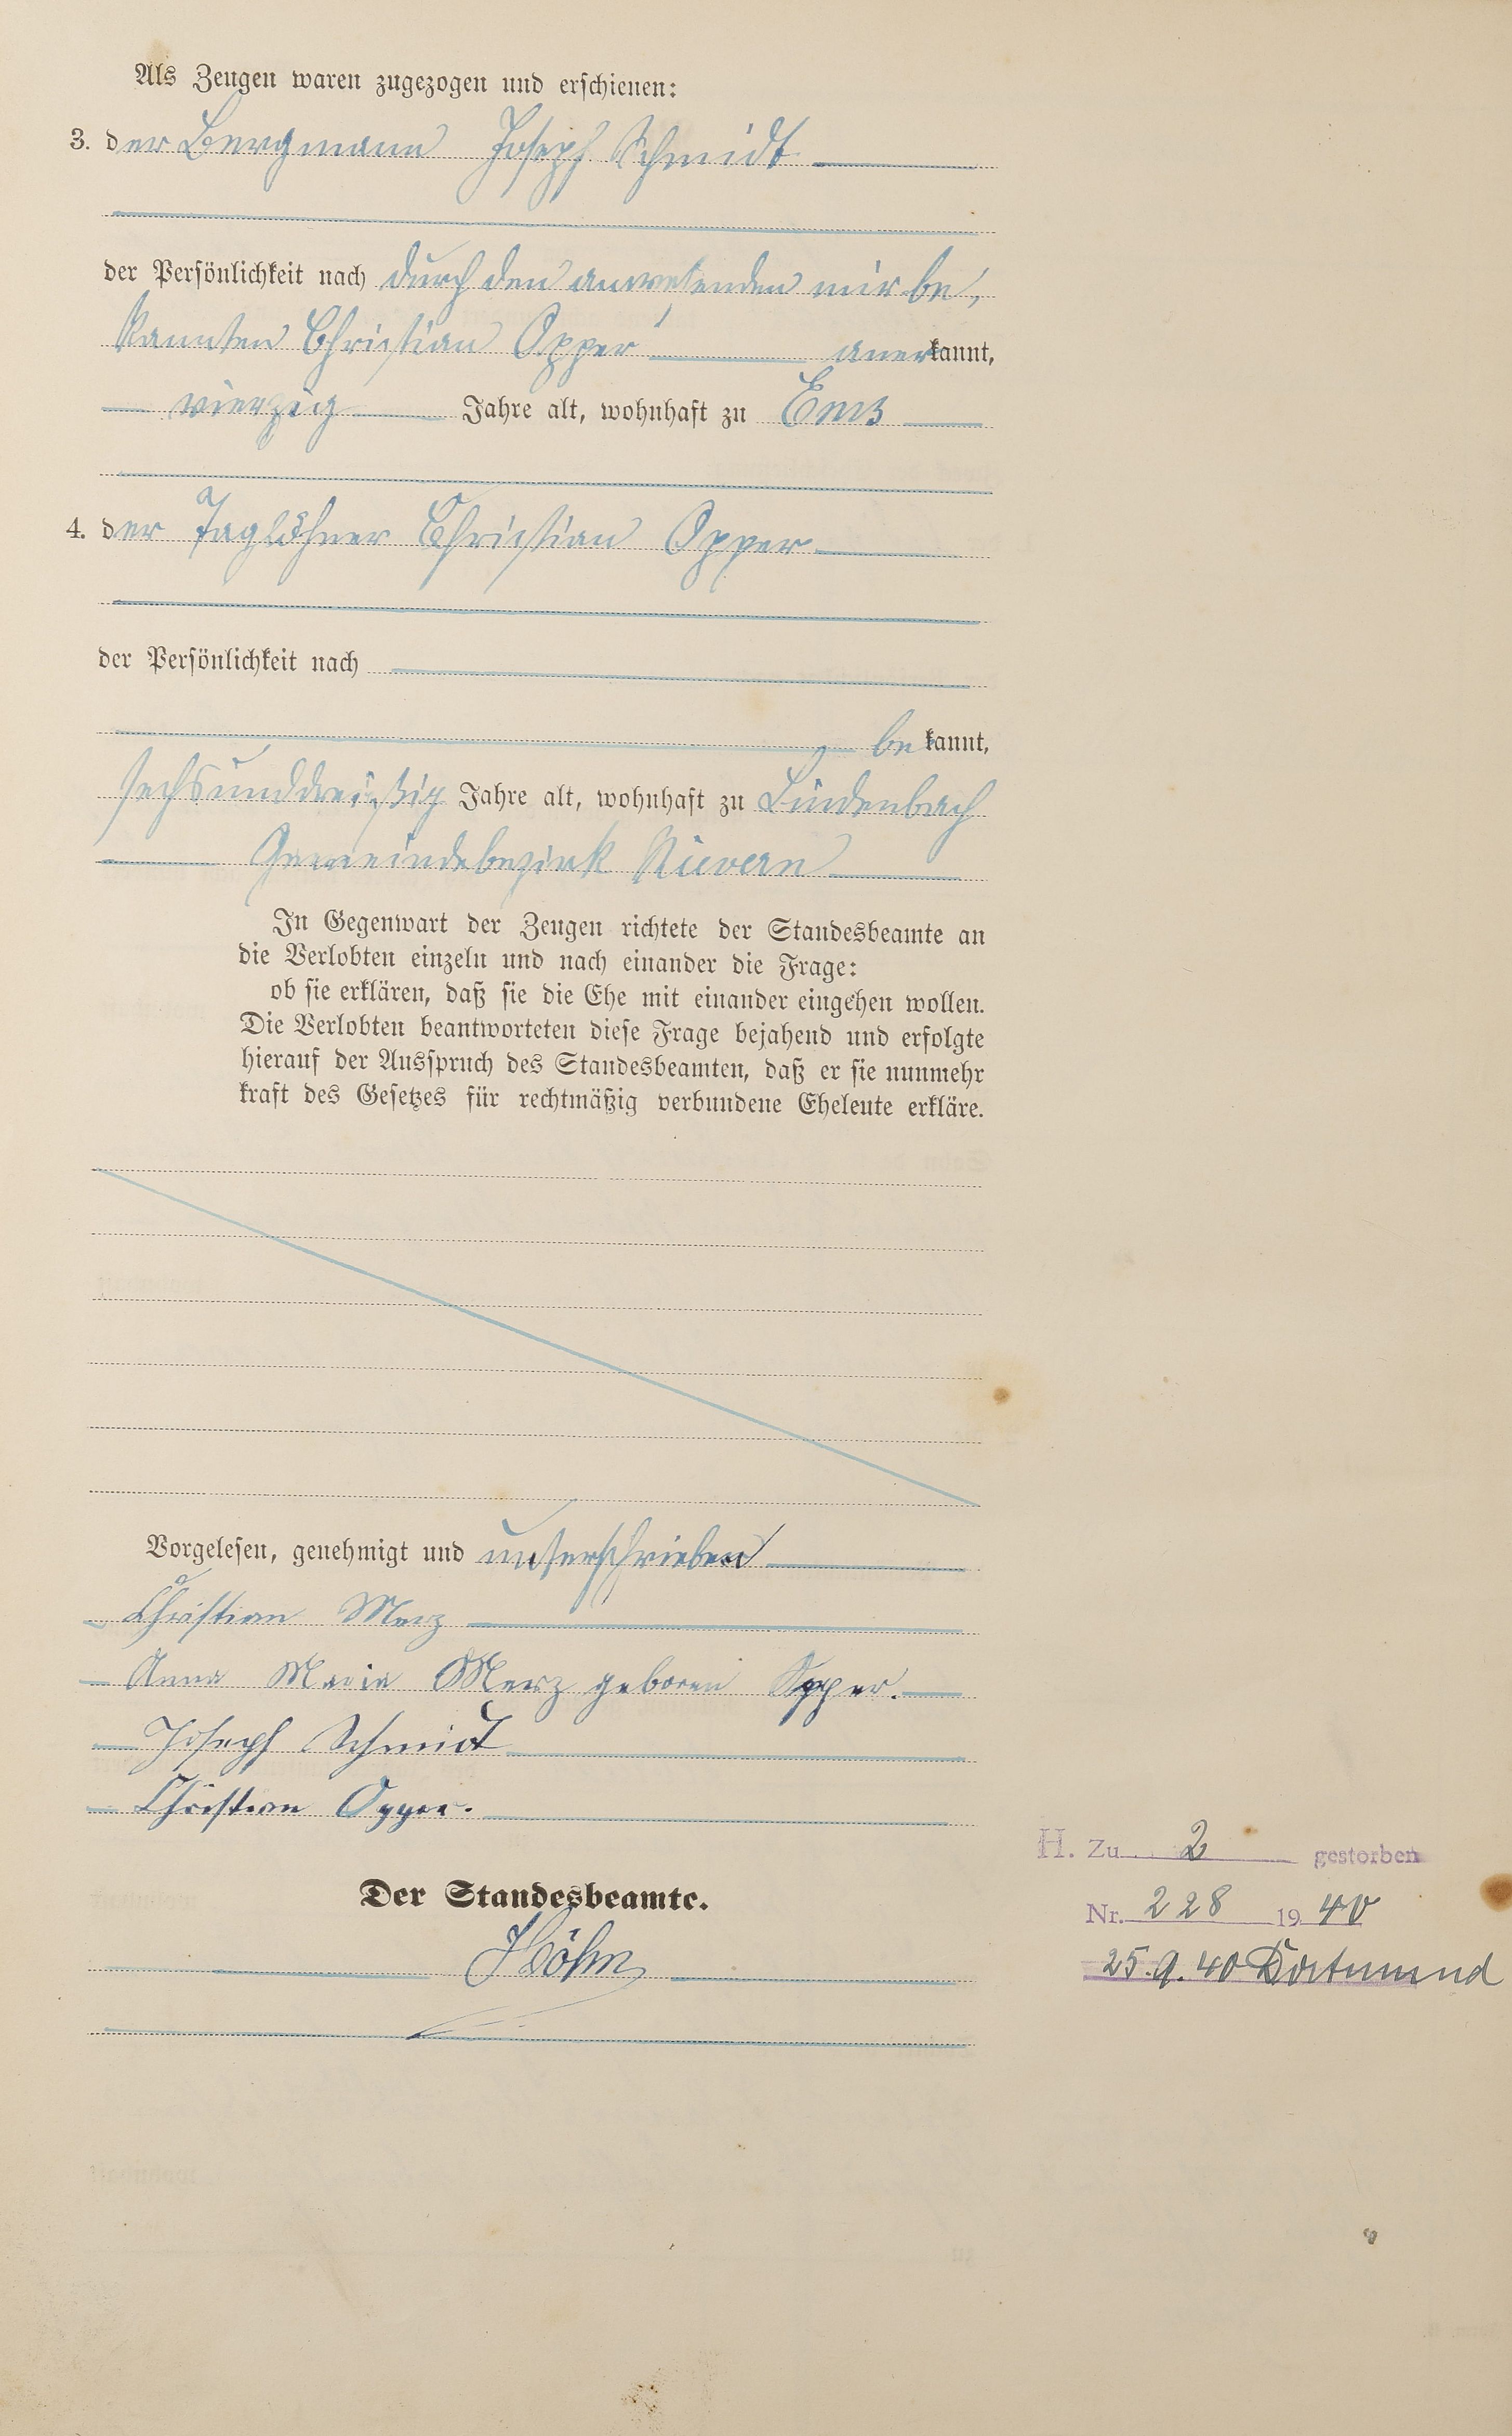 Als Zeugen waren zugezogen und erschienen:
3. der Bergmann Joseph Schmidt
der Persönlichkeit nach durch den anwesenden mir be,
kannten Christian Opper anerkannt,
vierzig Jahre alt, wohnhaft zu Ems
4. der Taglöhner Christian Opper
der Persönlichkeit nach
bekannt,
sechsunddreißig Jahre alt, wohnhaft zu Lindenbach
Gemeindebezirk Nievern
In Gegenwart der Zeugen richtete der Standesbeamte an
die Verlobten einzeln und nach einander die Frage:
ob sie erklären, daß sie die Ehe mit einander eingehen wollen.
Die Verlobten beantworteten diese Frage bejahend und erfolgte
hierauf der Ausspruch des Standesbeamten, daß er sie nunmehr
kraft des Gesetzes für rechtmäßig verbundene Eheleute erkläre.
Vorgelesen, genehmigt und unterschrieben
Christian Merz
Anna Maria Merz geboren Opper.
Joseph Schmidt
Christian Opper.
Der Standesbeamte.
H. Zu 2 gestorben
Nr. 228 1940
25.9.40 Dortmund